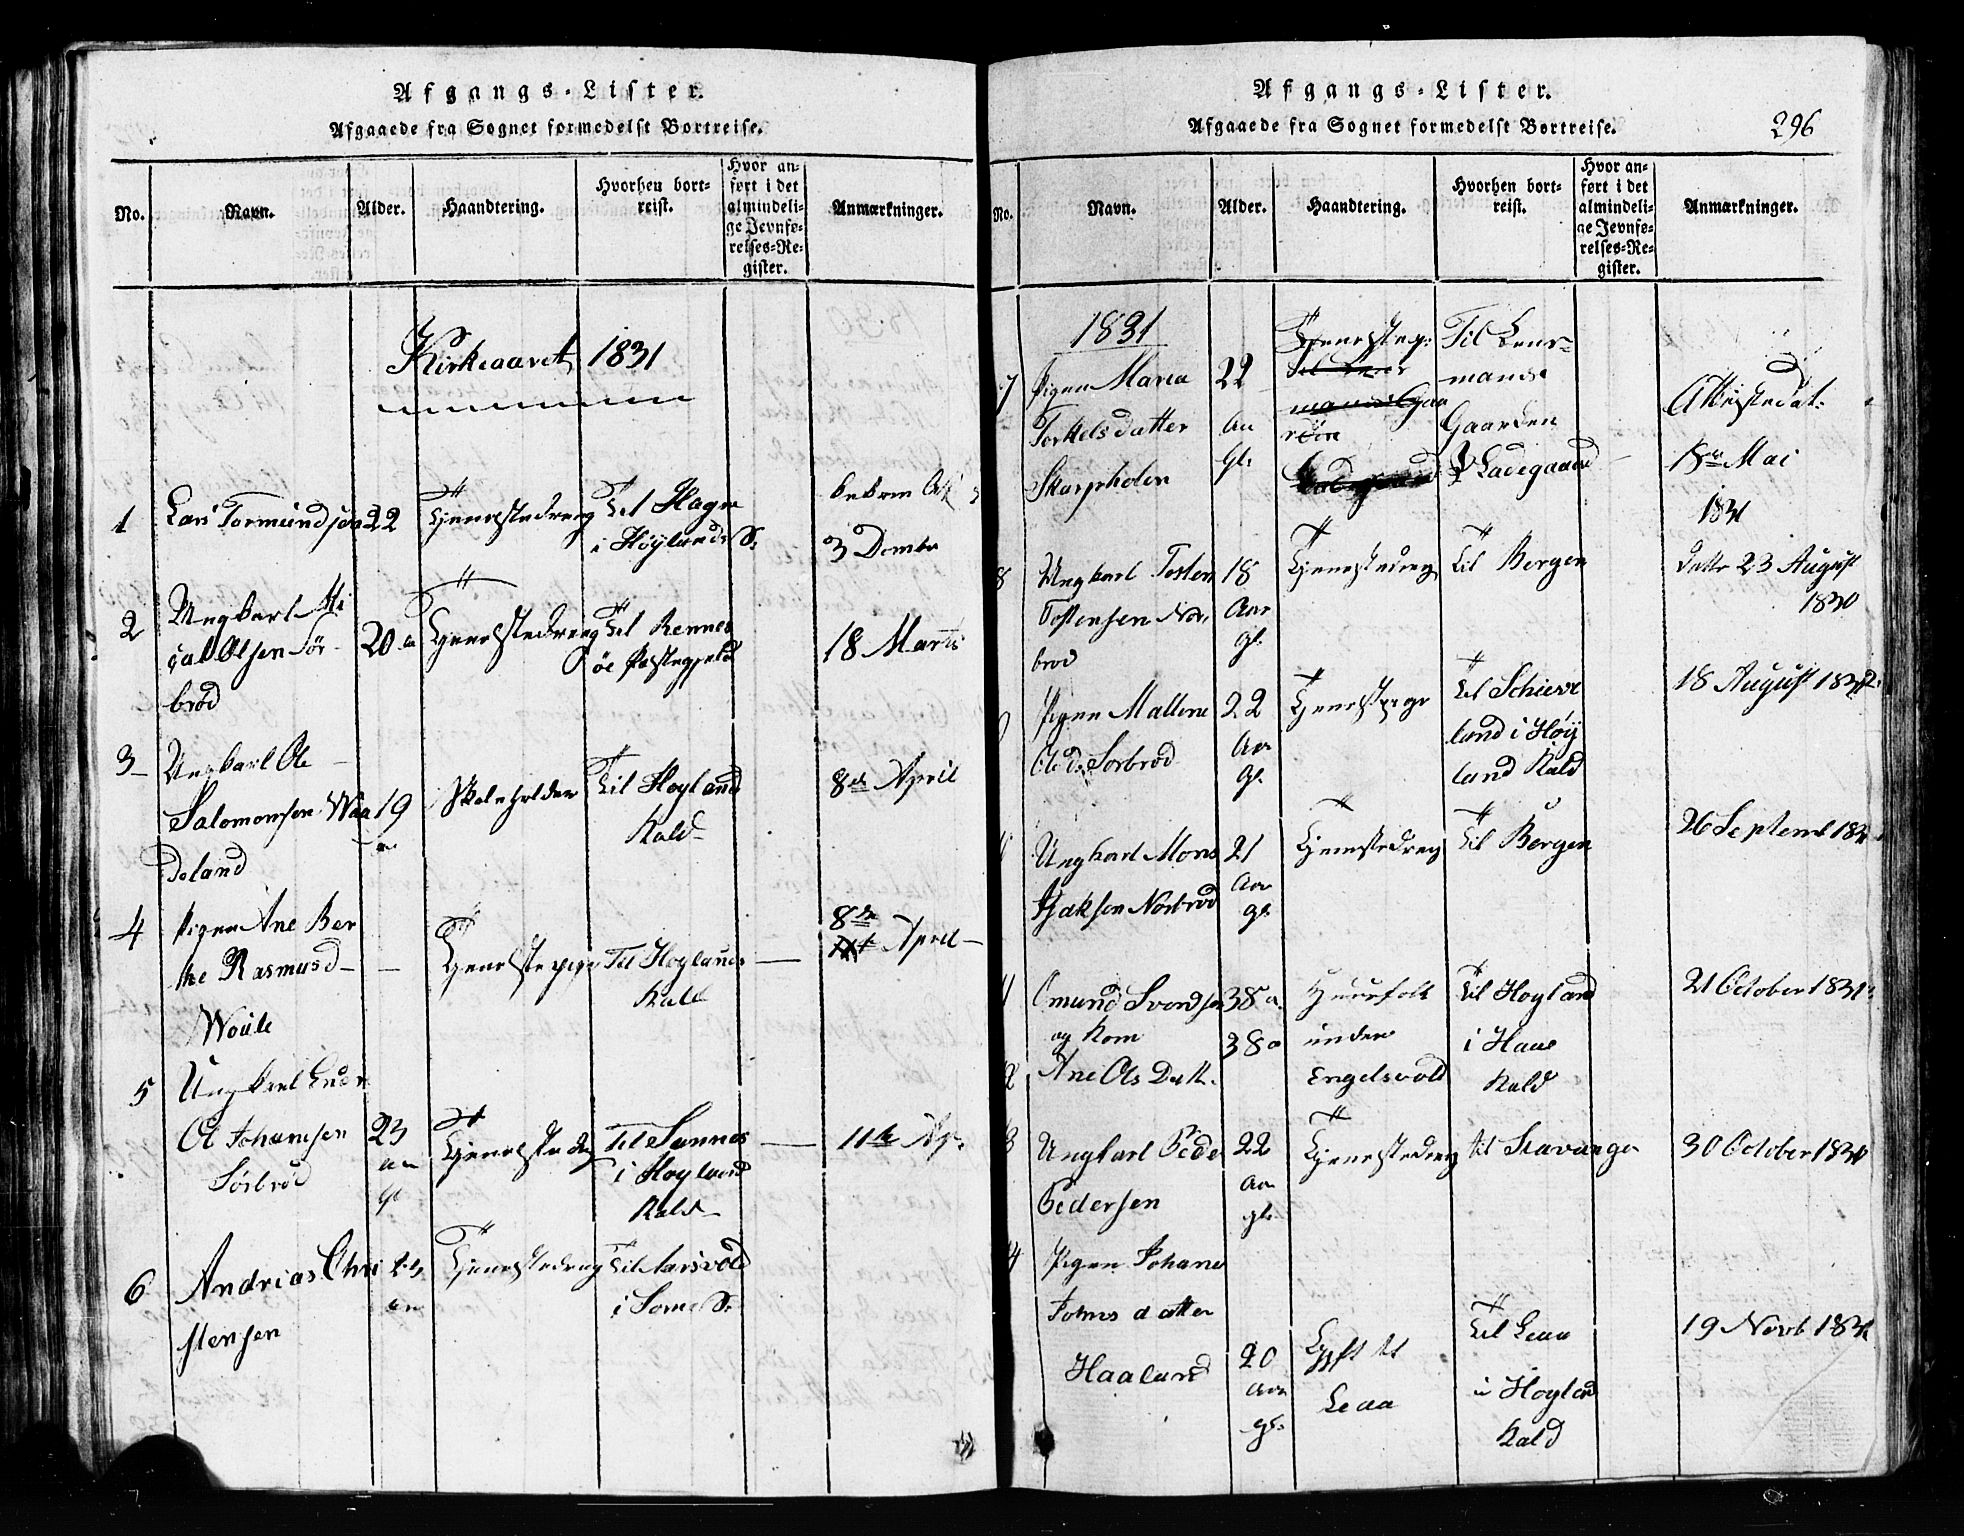 Afgangs-Lister.
Afgaaede fra Sognet formedelst Bortreise.
No.
Navn.
Alder.
Haandtering.
Hvorhen bort-
reist.
Hvor an-
ført i det
almindeli-
ge Jevnfø-
relses-Re-
gister.
Anmærkninger.
Kirkeaaret 1831
1
Lars Tormundsen
22
Tjenestedreng
Til Hagn
i Høylands
3 Decembr
2
Ungkarl Mi
çal Olsen Sör
bröd
20 a
Tjenestedreng
Til Rennes
öe Præstegjeld
18 Marts
3
Ungkarl Ole
Salomonsen Waa
deland
19
Skoleholder
Til Hoyland
Kald
8de April
4
Pigen Ane Ber
the Rasmusd
Woule
Tjenestepige
Til Hoylands
Kald
8de
April
5
Ungkarl
Ol Johannsen
Sörbröd
23
aar
gl
Tjenestedr
Til Sannes
i Hoyland
Kald
11te Ap.
6
Andrias Chri
stensen
aar
Tjenestedreng
Til
i Some
Afgangs-Lister.
Afgaaede fra Sognet formedelst Bortreise.
296
No.
Navn.
Alder.
Haandtering.
Hvorhen bort-
reist.
Hvor an-
ført i det
almindeli-
ge Jevnfø-
relses-Re-
gister.
Anmærkninger.
1831
7
Pigen Maria
Torkelsdatter
Skarpholen
22
aar
gl.
Tjenestepi:
Til Lens-
mands
Gaarden
Ladegaard
Attestedat:
18de Mai
1831
8
Ungkarl Tosten
Tostensen Nor
brod
18
Aar
gl.
Tjenestedreng
Til Bergen
Dato 23 August
1830
Pigen Mallene
Olsd. Sorbrod
22
Aar
gl.
Tjenestepige
Til Schieve
land i Høy
land Kald
18 August 1831
Ungkarl Mons
Isaksen Norbrod
21
Aar
gl.
Tjenestedreng
Til Bergen
26 Septemb 1831
Omund Svendsen
og Kone
Ane Ols Datt.
38 a.
38 a
Huusfolk
under
Engelsvold
Til Hoyland
i Haae
Kald
21 October 1831
Ungkarl Peder
Pedersen
22
Aar
gl.
Tjenestedreng
til Stavanger
30 October 1831
4
Pigen Johane
Tolmsdatter
Haaland
20
aar
gl.
Gift til
Leaa
Til Leaa
i Hoyland
Kald
19 Novb 1831